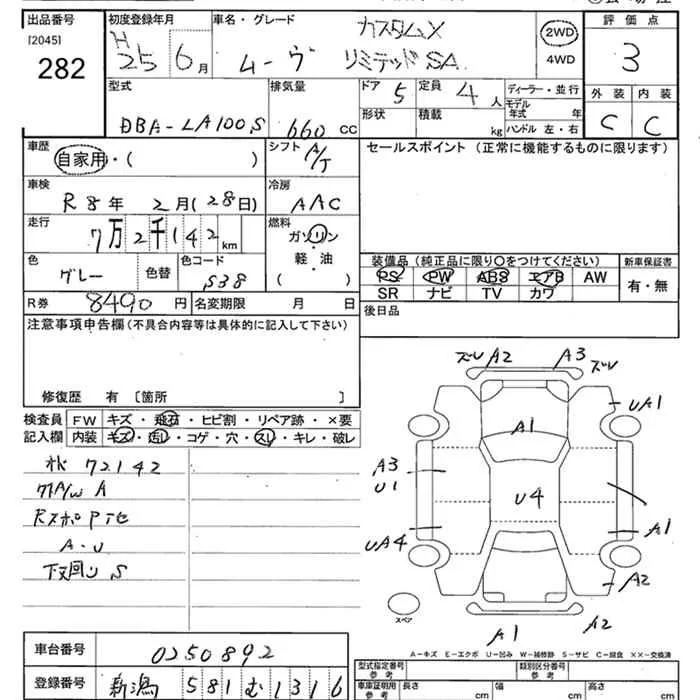 出品番号 初度登録年月 車名・グレード カスタムX 2WD 評価点
[2045] H 25 6月 ムーヴ リミテッド SA 4WD 3
282
型式 排気量 ドア 5 定員 4人 ディーラー・並行 外装 内装
DBA-LA100S 660 CC 形状 積載 kg モデル年式 年 C C
ハンドル 左・右
車歴 シフト A/T セールスポイント (正常に機能するものに限ります)
自家用・( )
車検 冷房
R8年 2月(28日) AAC
走行 燃料
7万2千142km ガソリン
軽・油
( )
色 グレー 色替 色コード S38
装備品 (純正品に限り○をつけてください) 新車保証書
PS PW ABS エアB AW 有・無
SR ナビ TV カワ
R券 8490円 名変期限 月 日 後日品
注意事項申告欄 (不具合内容等は具体的に記入して下さい)
修復歴 有 [箇所 ]
検査員記入欄 FW キズ・飛石・ヒビ割・リペア跡・×要
内装 キズ・汚レ・コゲ・穴・スレ・キレ・破レ
72142
A/W A
RスポP
A・U
下回り S
ズレ A2 A3 ズレ
UA1
A1
A3
U1
U4
A1
UA4
A2
A1 A2
スペア
A-キズ E-エクボ U-凹み W-補修跡 S-サビ C-腐食 ××-交換済
車台番号 0250892
登録番号 新潟 581 む 1316
型式指定番号 参考 類別区分番号 参考
車庫証明用 参考 長さ cm 幅 cm 高さ cm